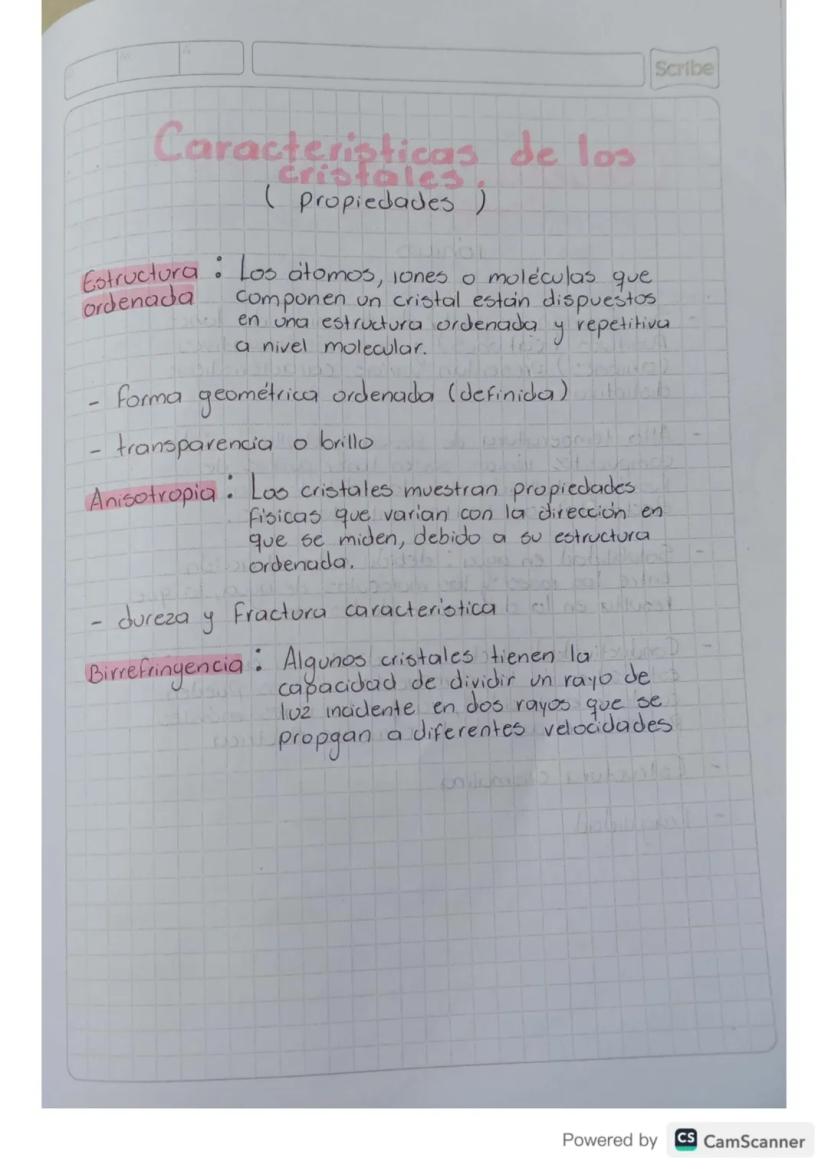 Scribe
Caracteristicas de los
cristales.
( propiedades )
Estructura : Los átomos, iones o moléculas que
ordenada componen un cristal están dispuestos
en una estructura ordenada y repetitiva
a nivel molecular.
- forma geométrica ordenada (definida)
- transparencia o brillo
Anisotropia : Los cristales muestran propiedades
fisicas que varian con la dirección en
que se miden, debido a su estructura
ordenada.
- dureza y fractura caracteristica
Birrefringencia : Algunos cristales tienen la
capacidad de dividir un rayo de
luz incidente en dos rayos que se
propgan a diferentes velocidades
Powered by CS CamScanner